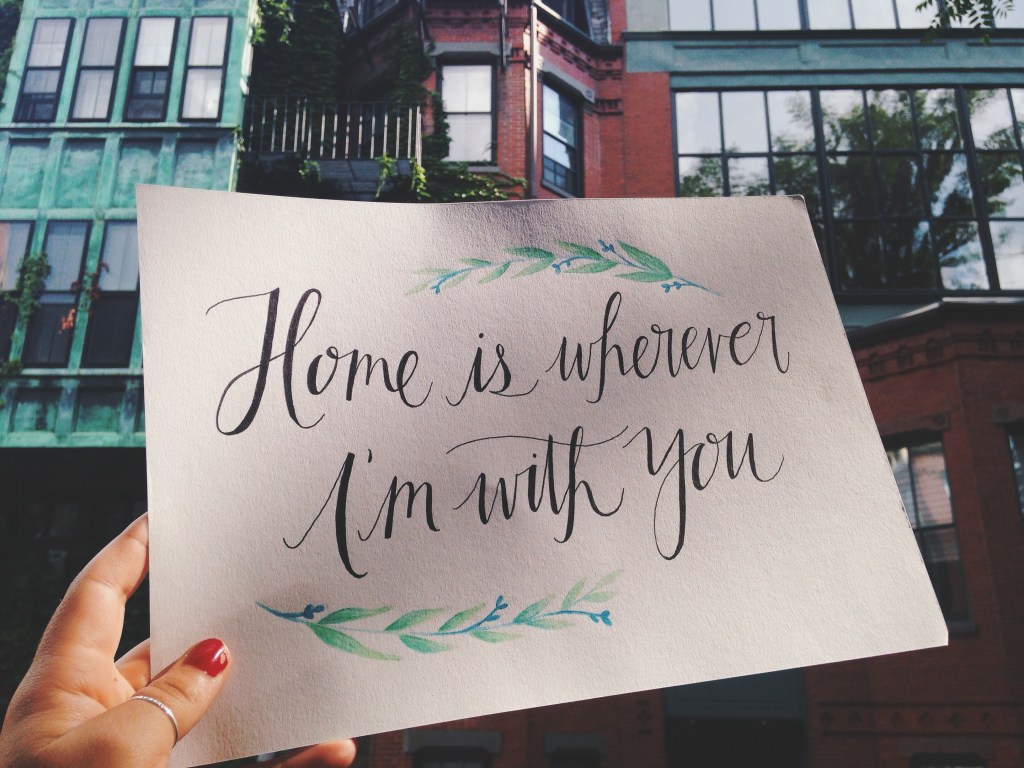 Home is wherever
I'm with you